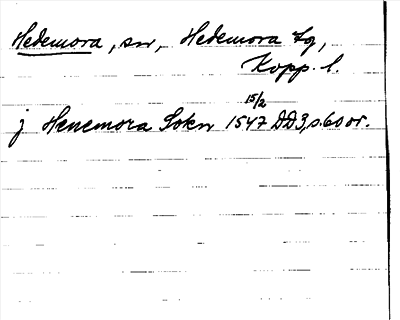 Hedemora, sn, Hedemora tg,
Kopp. l.
j Henemora Sokn 1547 15/2 DD3, s. 60 or.